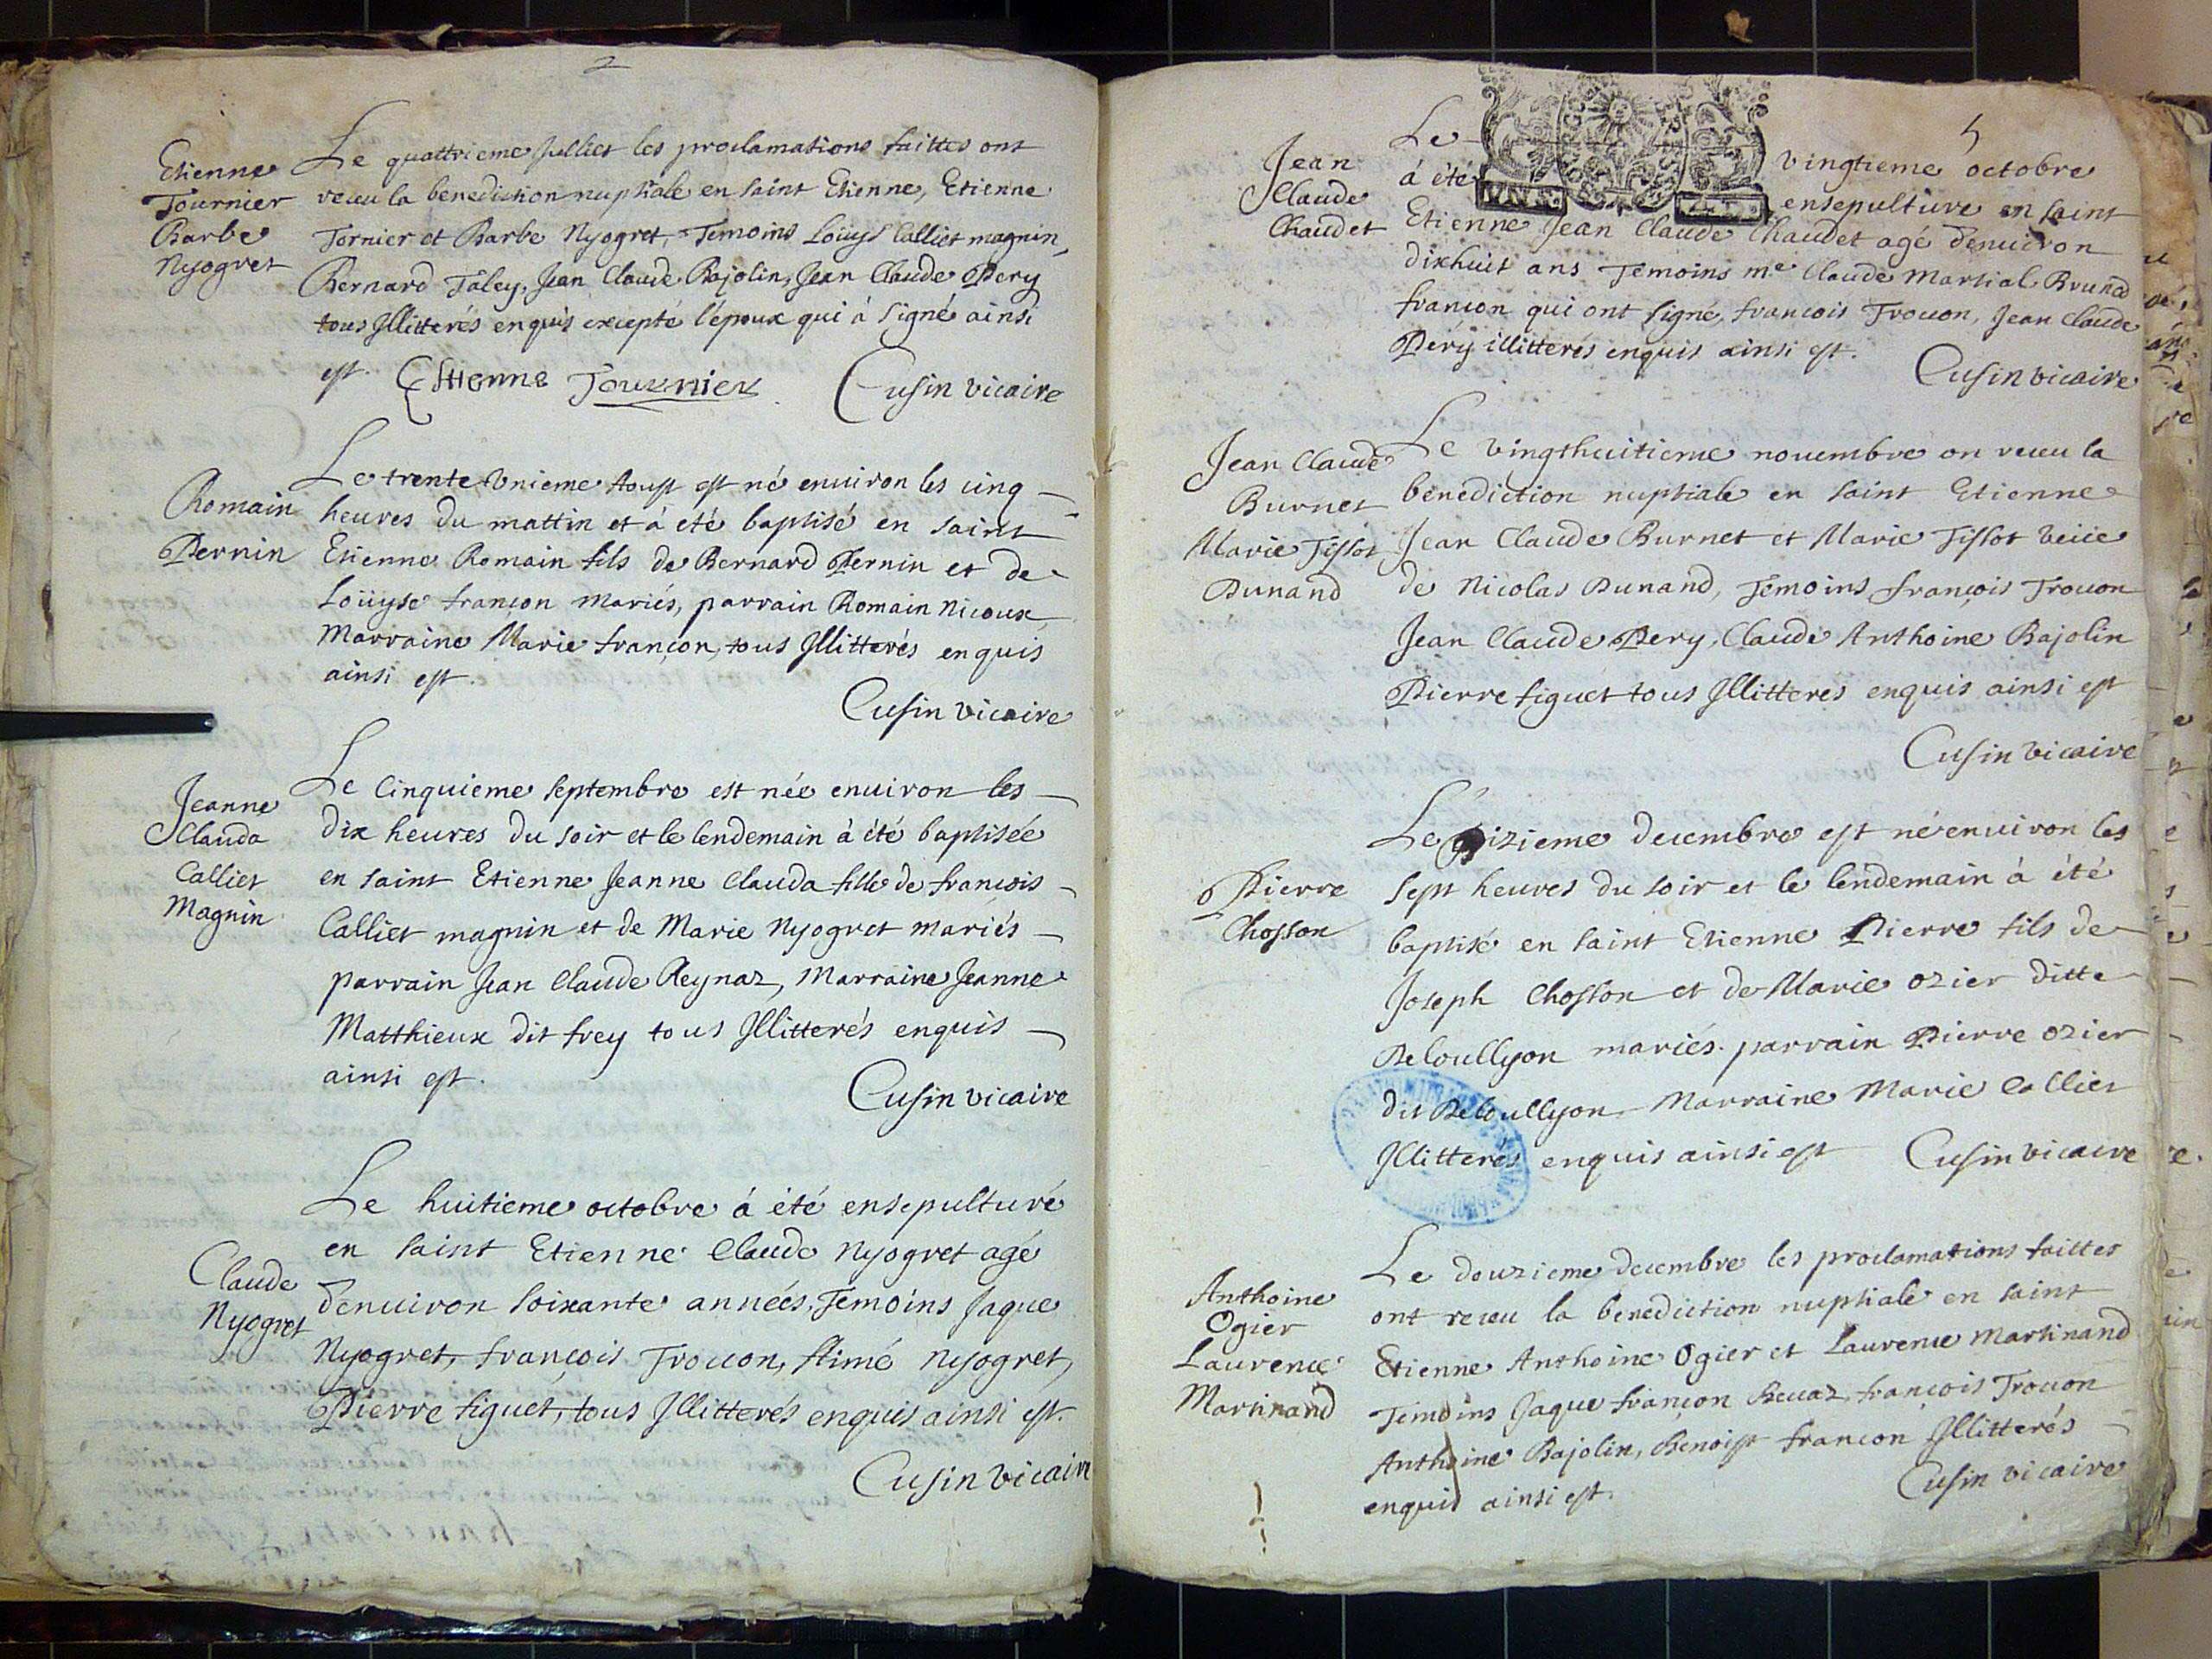 2
Etienne
Tournier
Barbe
Nyogret
Le quattrieme Jullies les proclamations faittes ont
receu la benediction nuptiale en saint Etienne, Etienne
Tornier et Barbe Nyogret, Temoins Loüys Callies magnin,
Bernard Taley, Jean Claude Bajolin, Jean Claude Pery
tous Illitterés enquis excepté l'époux qui à signé ainsi
est. Estienne Tournier Cusin vicaire
Romain
Pernin
Le trente unieme Aoust est né enuiron les cinq
heures du mattin et à eté baptisé en saint
Etienne Romain fils de Bernard Pernin et de
Loüyse françon Mariés, parrain Romain Nicoux
Marraine Marie françon, tous Illitterés enquis
ainsi est.
Cusin vicaire
Jeanne
Clauda
Calliet
Magnin
Le Cinquieme septembre est née enuiron les
dix heures du soir et le lendemain à été baptisée
en saint Etienne Jeanne Clauda fille de françois
Calliet magnin et de Marie Nyogret mariés
parrain Jean Claude Reynaz, Marraine Jeanne
Matthieux dit frey tous Illitterés enquis
ainsi est.
Cusin vicaire
Claude
Nyogret
Le huitieme octobre à été ensepulturé
en saint Etienne Claude Nyogret agé
d'enuiron soixante années, Temoins Jaque
Nyogret, françois Trouon, Aimé Nyogret,
Pierre figuet, tous Illitterés enquis ainsi est.
Cusin vicaire
5
Jean
Claude
Chaudet
Le vingtieme octobre
à été ensepulturé en saint
Etienne Jean Claude Chaudet agé d'enuiron
dixhuit ans Temoins me Claude Martial Brunod
françon qui ont signé, françois Trouon, Jean Claude
Pery illitterés enquis ainsi est.
Cusin vicaire
Jean Claude
Burnet
Marie Tissot
Dunand
Le vingthuitieme nouembre on receu la
benediction nuptiale en saint Etienne
Jean Claude Burnet et Marie Tissot veüe
de Nicolas Dunand, Temoins françois Trouon
Jean Claude Pery, Claude Anthoine Bajolin
Pierre figuet tous Illitteres enquis ainsi est
Cusin vicaire
Pierre
Chosson
Le dizieme decembre est né enuiron les
sept heures du soir et le lendemain à été
baptisé en saint Etienne Pierre fils de
Joseph Chosson et de Marie ozier ditte
Deloullyon mariés. parrain Pierre ozier
dit Deloullyon Marraine Marie Callier
Illitterés enquis ainsi est Cusin vicaire
Anthoine
Ogier
Laurence
Martinand
Le douzieme decembre les proclamations faittes
ont receu la benediction nuptiale en saint
Etienne Anthoine Ogier et Laurence Martinand
Temoins Jaque françon Reuaz, françois Trouon
Anthoine Bajolin, Benoist françon Illitterés
enquis ainsi est.
Cusin vicaire